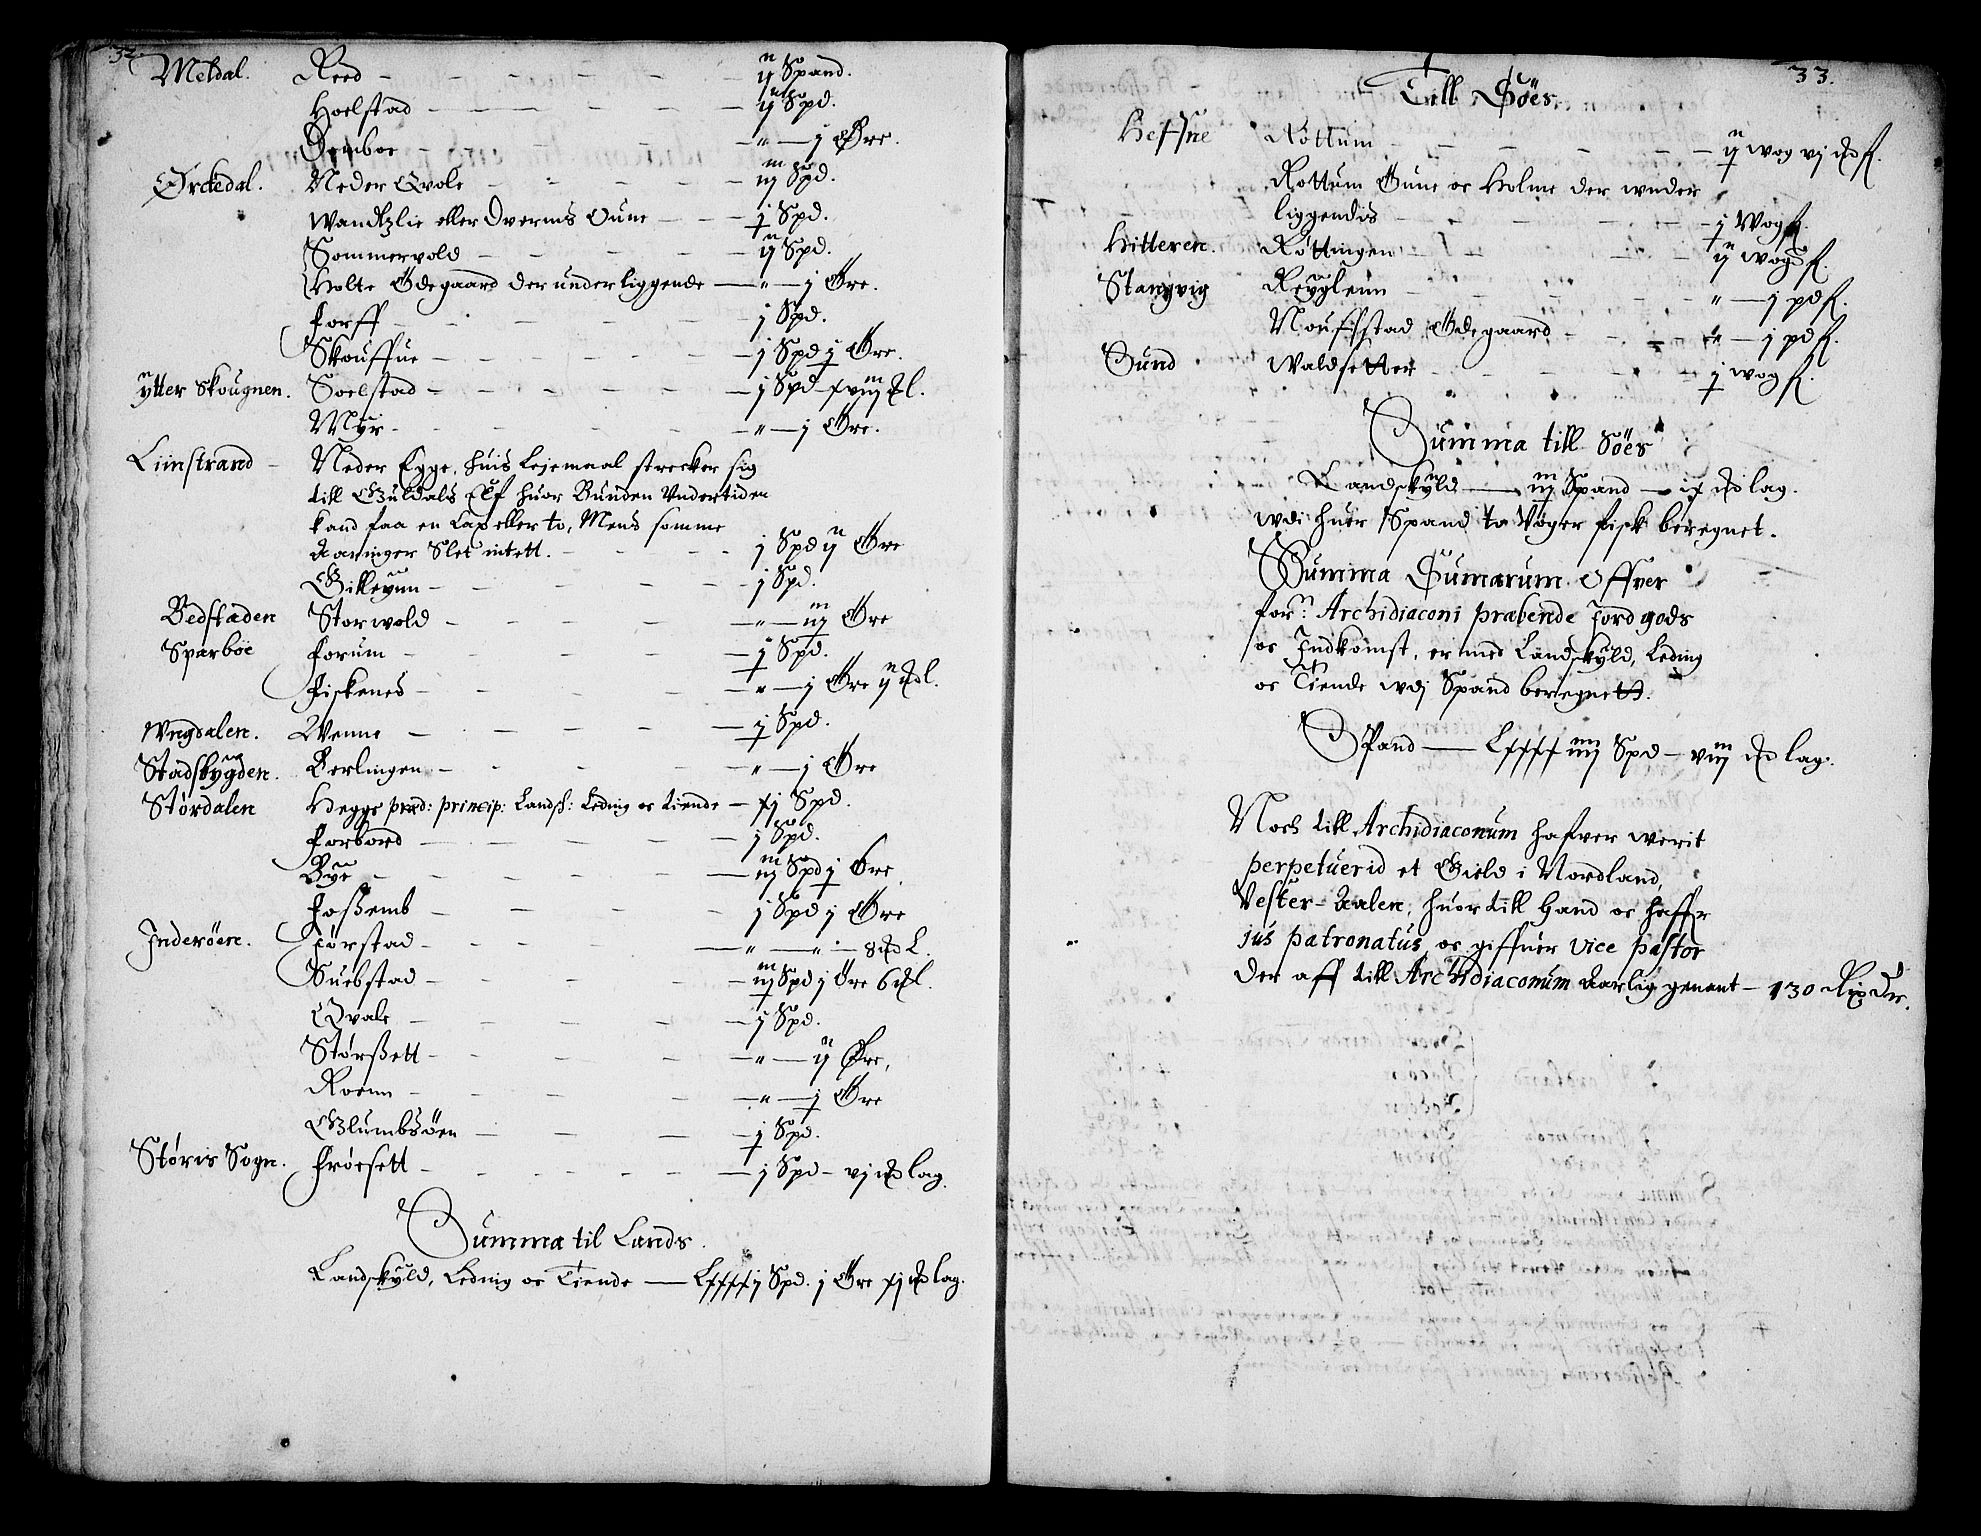 32.
Meldal. Reed — ij Spand.
Hoelstad — ij Spd.
Domboe — " — j Øre.
Ørckedal. Neder Qvole — iij Spd.
Wandtzlie eller Dverms Oune — j Spd.
Sommervold — ij Spd.
Holte Ødegaard der underliggende — " — j Øre.
Forff — j Spd.
Skouffue — j Spd j Øre.
ytter Skougnen. Soelstad — j Spd — xviij ℔l.
Myr — " — j Øre.
Liimstrand — Neder Egge, huis Lejemaal strecker sig
till Guldals Elf huor Bunden Vndertiden
kand faa en Lax eller to, Mens somme
Aaringer Slet intett. — j Spd ij Øre
Gilleynn — j Spd.
Bedstaden Storwold — " — iij Øre
Sparboe Forum — j Spd.
Fiskenes — " — j Øre ij ℔l.
Wngdalen. Wenne — j Spd.
Stadsbÿgden. Berlingen — " — j Øre
Størdalen Hegge præd: princip: Landsk: Leding oc tiende — xj Spd.
Forbord — j Spd.
Bye — iij Spd j Øre
Foßemb — j Spd j Øre
Inderöen. Tørstad — " — " — 8 ℔ L.
Suebstad — iij Spd j Øre 6 ℔l.
Qvale — j Spd.
Størßett — " — ij Øre,
Roenn — " — j Øre
Glumbsöen — j Spd.
Støris Sogn. Fröesett — j Spd — vj ℔ lag.
Summa til Lands.
Landskyld, Leding oc Tiende — Lxxxxij Spd. j Øre xj ℔ lag.
33.
Till Söes
Heffne Röttum — ij wog vj ℔ f.
Rottum Öune oc Holme der wnder
liggendis — j Wog f.
Hitteren. Röttingen — ij wog f.
Stangvig Reygleim — " — j pd f.
Nouffstad Ödegaard — " — j pd f.
Sund Waldsetter — j wog f.
Summa till Söes
Landskyld — iij Spand — ix ℔ lag.
udi huer Spand to Vöger fisk beregnet.
Summa Sumarum offver
forn: Archidiaconi præbende Jordgods
oc Indkomst, er med Landskyld, Leding
oc Tiende udj Spand beregnett.
Spand — Lxxxxiiij Spd — viij ℔ lag.
Noch till Archidiaconum hafver werit
perpetuerid et Gield i Nordland,
Vester-Aalen, huor till Hand oc haffr
jus patronatus, oc giffuer vice pastor
der aff till Archidiaconum Aarlig genant — 130 Rix Dr.